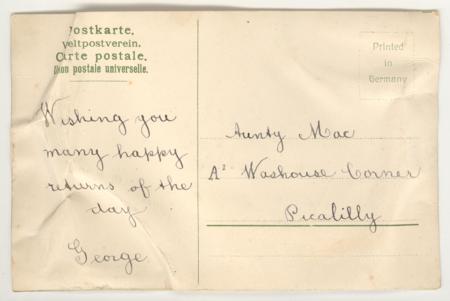 Postkarte.
Weltpostverein.
Carte postale.
Union postale universelle.
Printed
in
Germany
Wishing you
many happy
returns of the
day
George
Aunty Mac
A² Washouse Corner
Picalilly